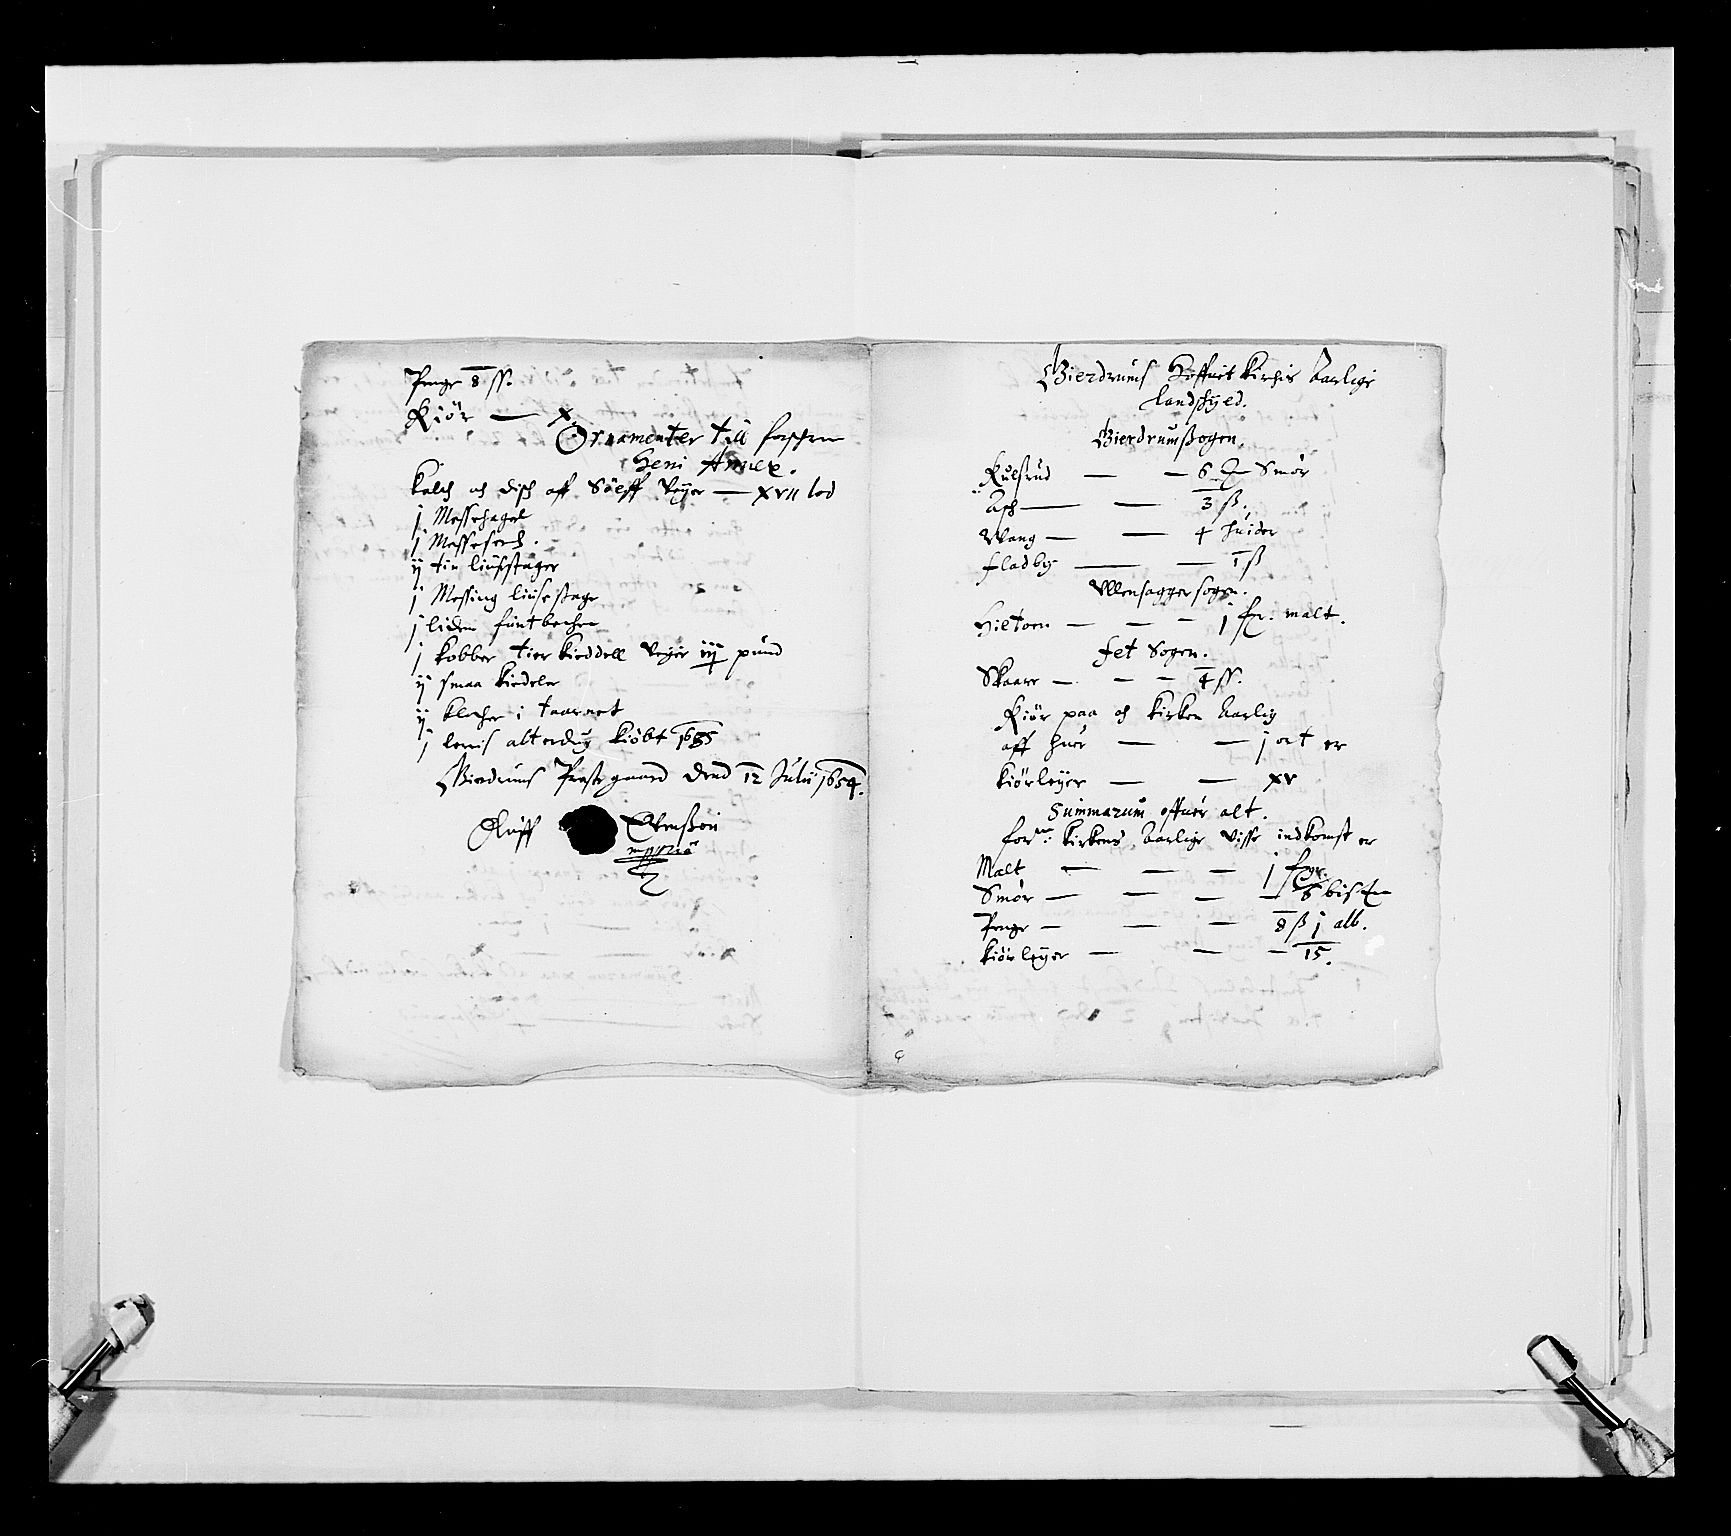 Penge 8 ss.
Kiör — x
Ornamenter till forschreffne
Heni Annex.
Kalch och Disch aff Sölff Veyer — xvii lod
j Messehagel
j Messeserch.
ij tin liusestager
j Messing liusestage
j liden funtbechen
j kobber tier kieddell Veyer iij pund
ij smaa kiedeler
ij klocher i taarnet
j lerris alterdug kiöbt 1635
Gierdrums Prestegaard Dend 12 Julij 1654.
Oluff Evenßøn
mppria
Gierdrums Hoffuit Kirkis Aarlige
Landschyed.
Gierdrumßogen.
Kulsrud — — 6 Smör
Asch — — 3 ß.
Wang — — 4 huider
fladby — — 1 ß
Ullensaggersogen.
Hiltoen — — — j fr: malt.
fet Sogen.
Skaare — — — 4 ss.
Kiör paa och kirken Aarlig
aff huer — — j ort er
kiörleyer — — xv
Summarum offuer alt.
for: kirkens Aarlige Visse indkomst er
Malt — — — j
Smör — — — 6
Penge — — — 8 ß j alb.
kiörleyer — — — 15.